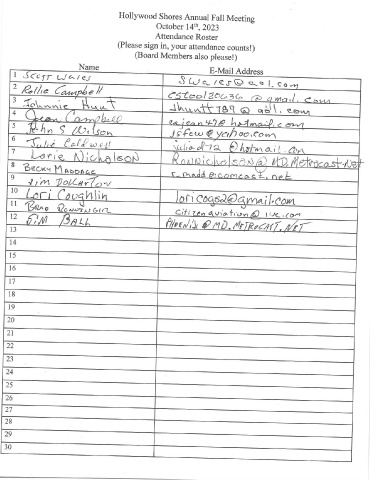 Hollywood Shores Annual Fall Meeting
October 14th, 2023
Attendance Roster
(Please sign in, your attendance counts!)
(Board Members also please!)
Name E-Mail Address
1 Scott Wales swales@aol.com
2 Rollie Campbell @gmail.com
3 Johnnie Hunt jhuntt787@aol.com
4 Jean Campbell @hotmail.com
5 John S Wilson jsfcw@yahoo.com
6 Julie Caldwell @hotmail.com
7 Lorie Nicholson RonNicholson@MD.Metrocast.Net
8 Becky Maddage r.madd@comcast.net
9 Jim Dollarton
10 Lori Coughlin loricogs2@gmail.com
11 Brad citizenaviation@live.com
12 Jim Ball Phoenix@MD.Metrocast.Net
13
14
15
16
17
18
19
20
21
22
23
24
25
26
27
28
29
30